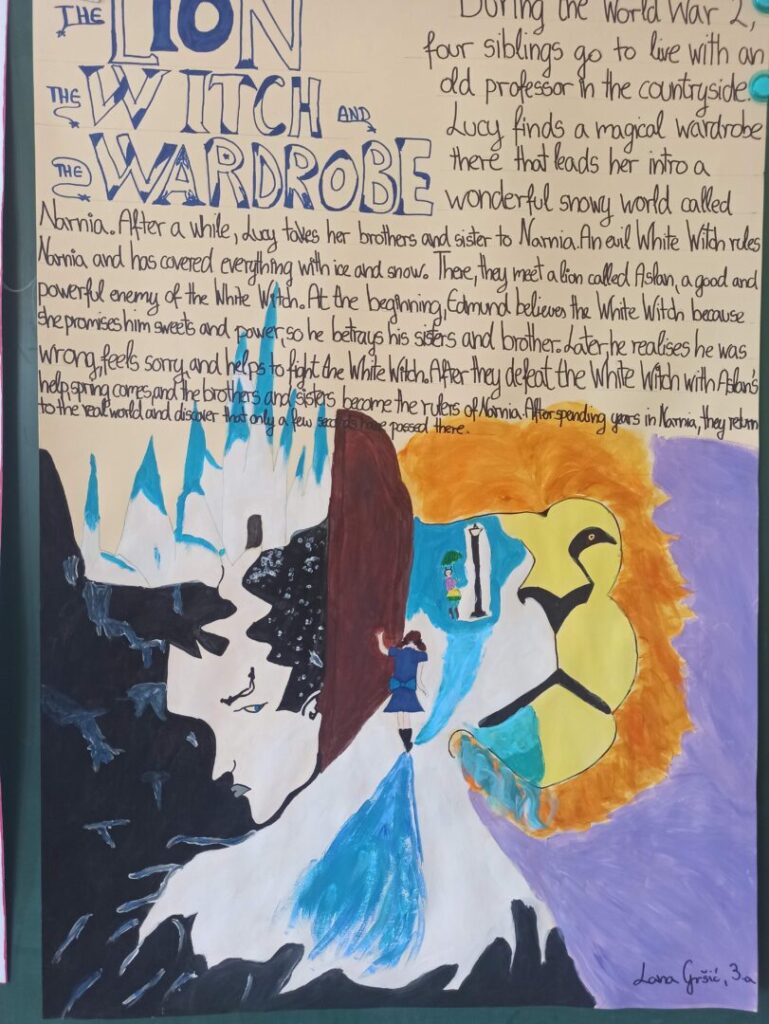 THE LION
THE WITCH AND
THE WARDROBE
During the World War 2,
four siblings go to live with an
old professor in the countryside.
Lucy finds a magical wardrobe
there that leads her intro a
wonderful snowy world called
Narnia. After a while, Lucy takes her brothers and sister to Narnia. An evil White Witch rules
Narnia, and has covered everything with ice and snow. There, they meet a lion called Aslan, a good and
powerful enemy of the White Witch. At the beginning, Edmund believes the White Witch because
she promises him sweets and power, so he betrays his sisters and brother. Later, he realises he was
wrong, feels sorry, and helps to fight the White Witch. After they defeat the White Witch with Aslan's
help, spring comes, and the brothers and sisters become the rulers of Narnia. After spending years in Narnia, they return
to the real world and discover that only a few seconds have passed there.
Lana Gršić, 3.a